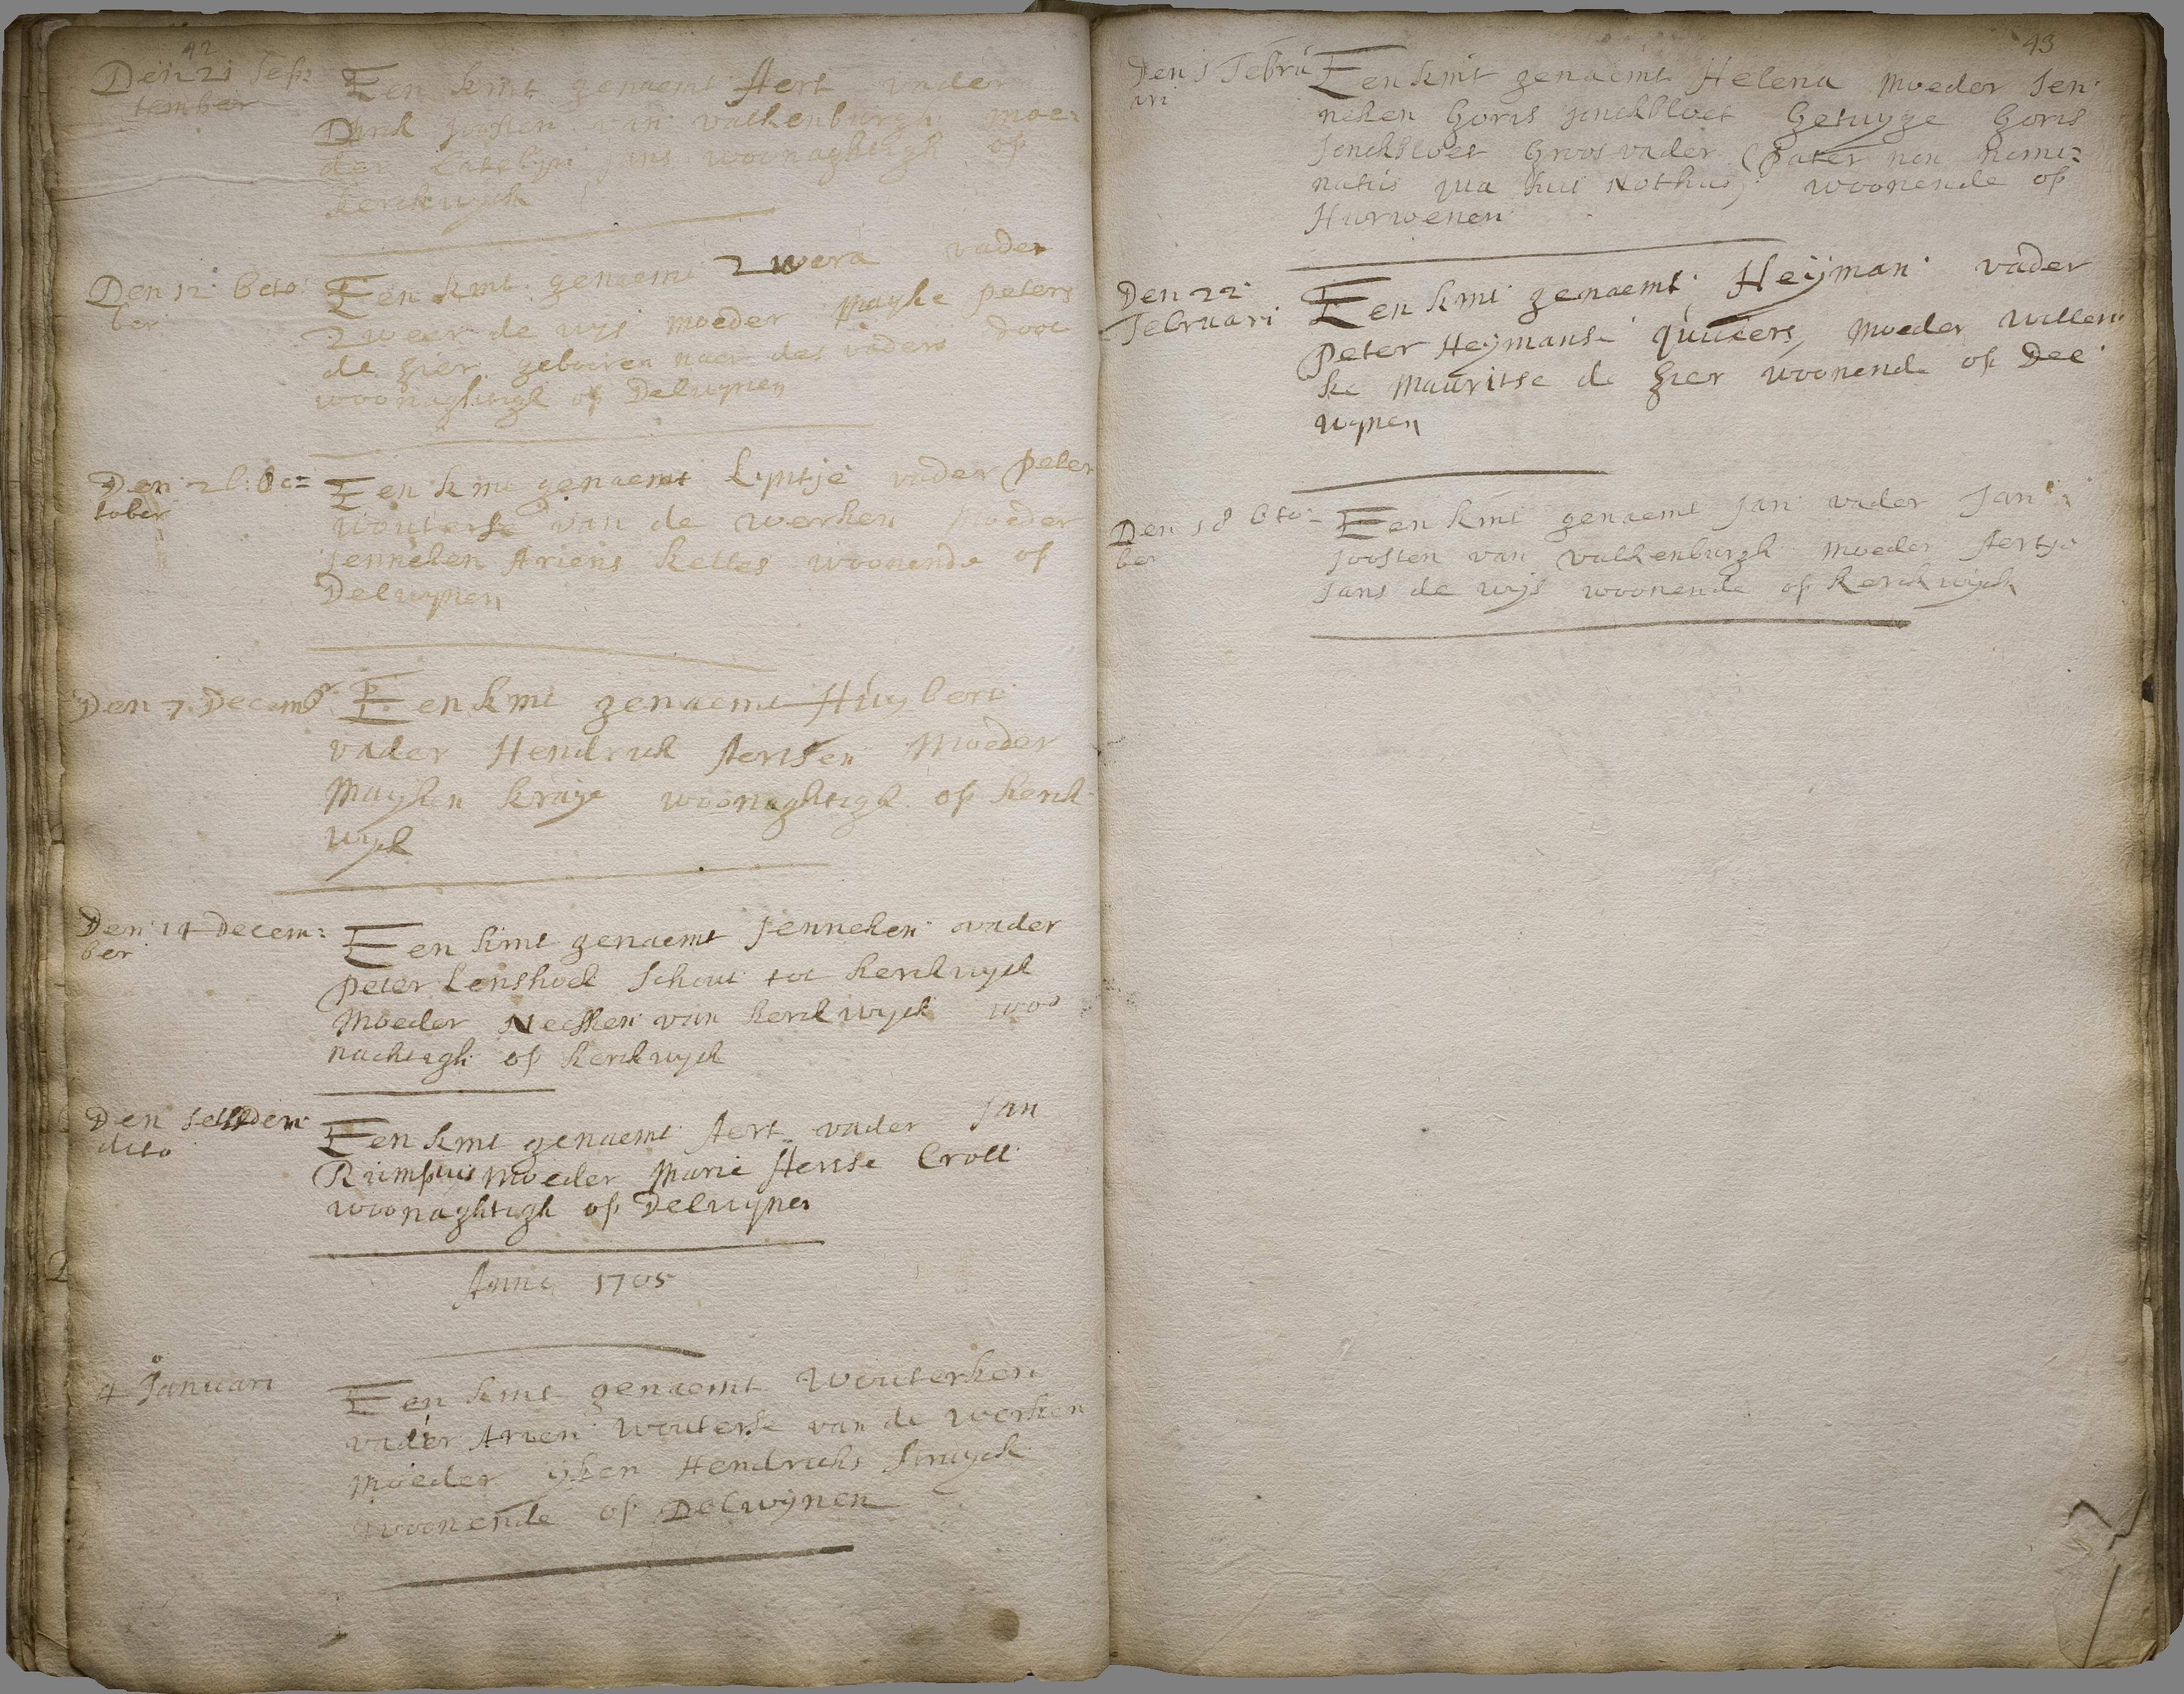 42
Den 21 Sep:
tember
Een kint genaemt Aert vader
Dirck Joosten van valkenburgh moe:
der Catelijn Jans woonaghtigh op
kerckwijck
Den 12 Octo:
ber
Een kint genaemt Zwera vader
Zweer de wijs moeder Mayke peters
de gier geboren naer des vaders doot
woonaghtigh op Delwijnen
Den 26: Oc=
tober
Een kint genaemt Lyntje vader peter
wouterse van de werken moeder
Jenneken Ariens kelles woonende op
Delwynen
Den 7 Decemb
Een kint genaemt Huybert
vader Hendrick Aertsen Moeder
Mayken kraye woonaghtigh op kerck
wyck
Den 14 Decem:
ber
Een kint genaemt Jenneken vader
peter Lenshoek Schout tot kerckwyck
Moeder Neesken van kerckwyck woo
nachtigh op kerckwyck
Den selfden
dito
Een kint genaemt Aert vader Jan
Rumpuis Moeder Marie Aertse Croll
woonaghtigh op Delwynen
Anno 1705
4 Januari
Een kint genaemt Wouterken
vader Arien Wouterse van de Werken
Moeder ijken Hendricks
woonende op Delwijnen
43
Den 1 Febru
ari
Een kint genaemt Helena Moeder Jen
neken Goris Jonckbloet Getuyge Goris
Jonckbloet Groos vader (pater non nomi:
natus qua Nothus) woonende op
Hurwenen
Den 22
Februari
Een kint genaemt Heijman vader
Peter Heymanse quiters, Moeder willem
ke Mauritse de Gier woonende op Del
wynen
Den 18 Octo:
ber
Een kint genaemt Jan vader Jan
Joosten van valkenburgh Moeder Aertje
Jans de wijs woonende op kerckwijck